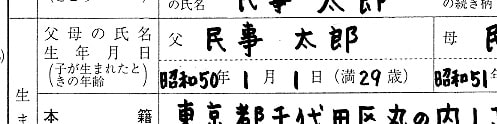 の氏名 民事 太郎 の続き柄
父母の氏名 父 民事 太郎 母 民
生年月日
(子が生まれたと きの年齢) 昭和50年 1月 1日(満29歳) 昭和51年
生 本籍 東京都千代田区丸の内1